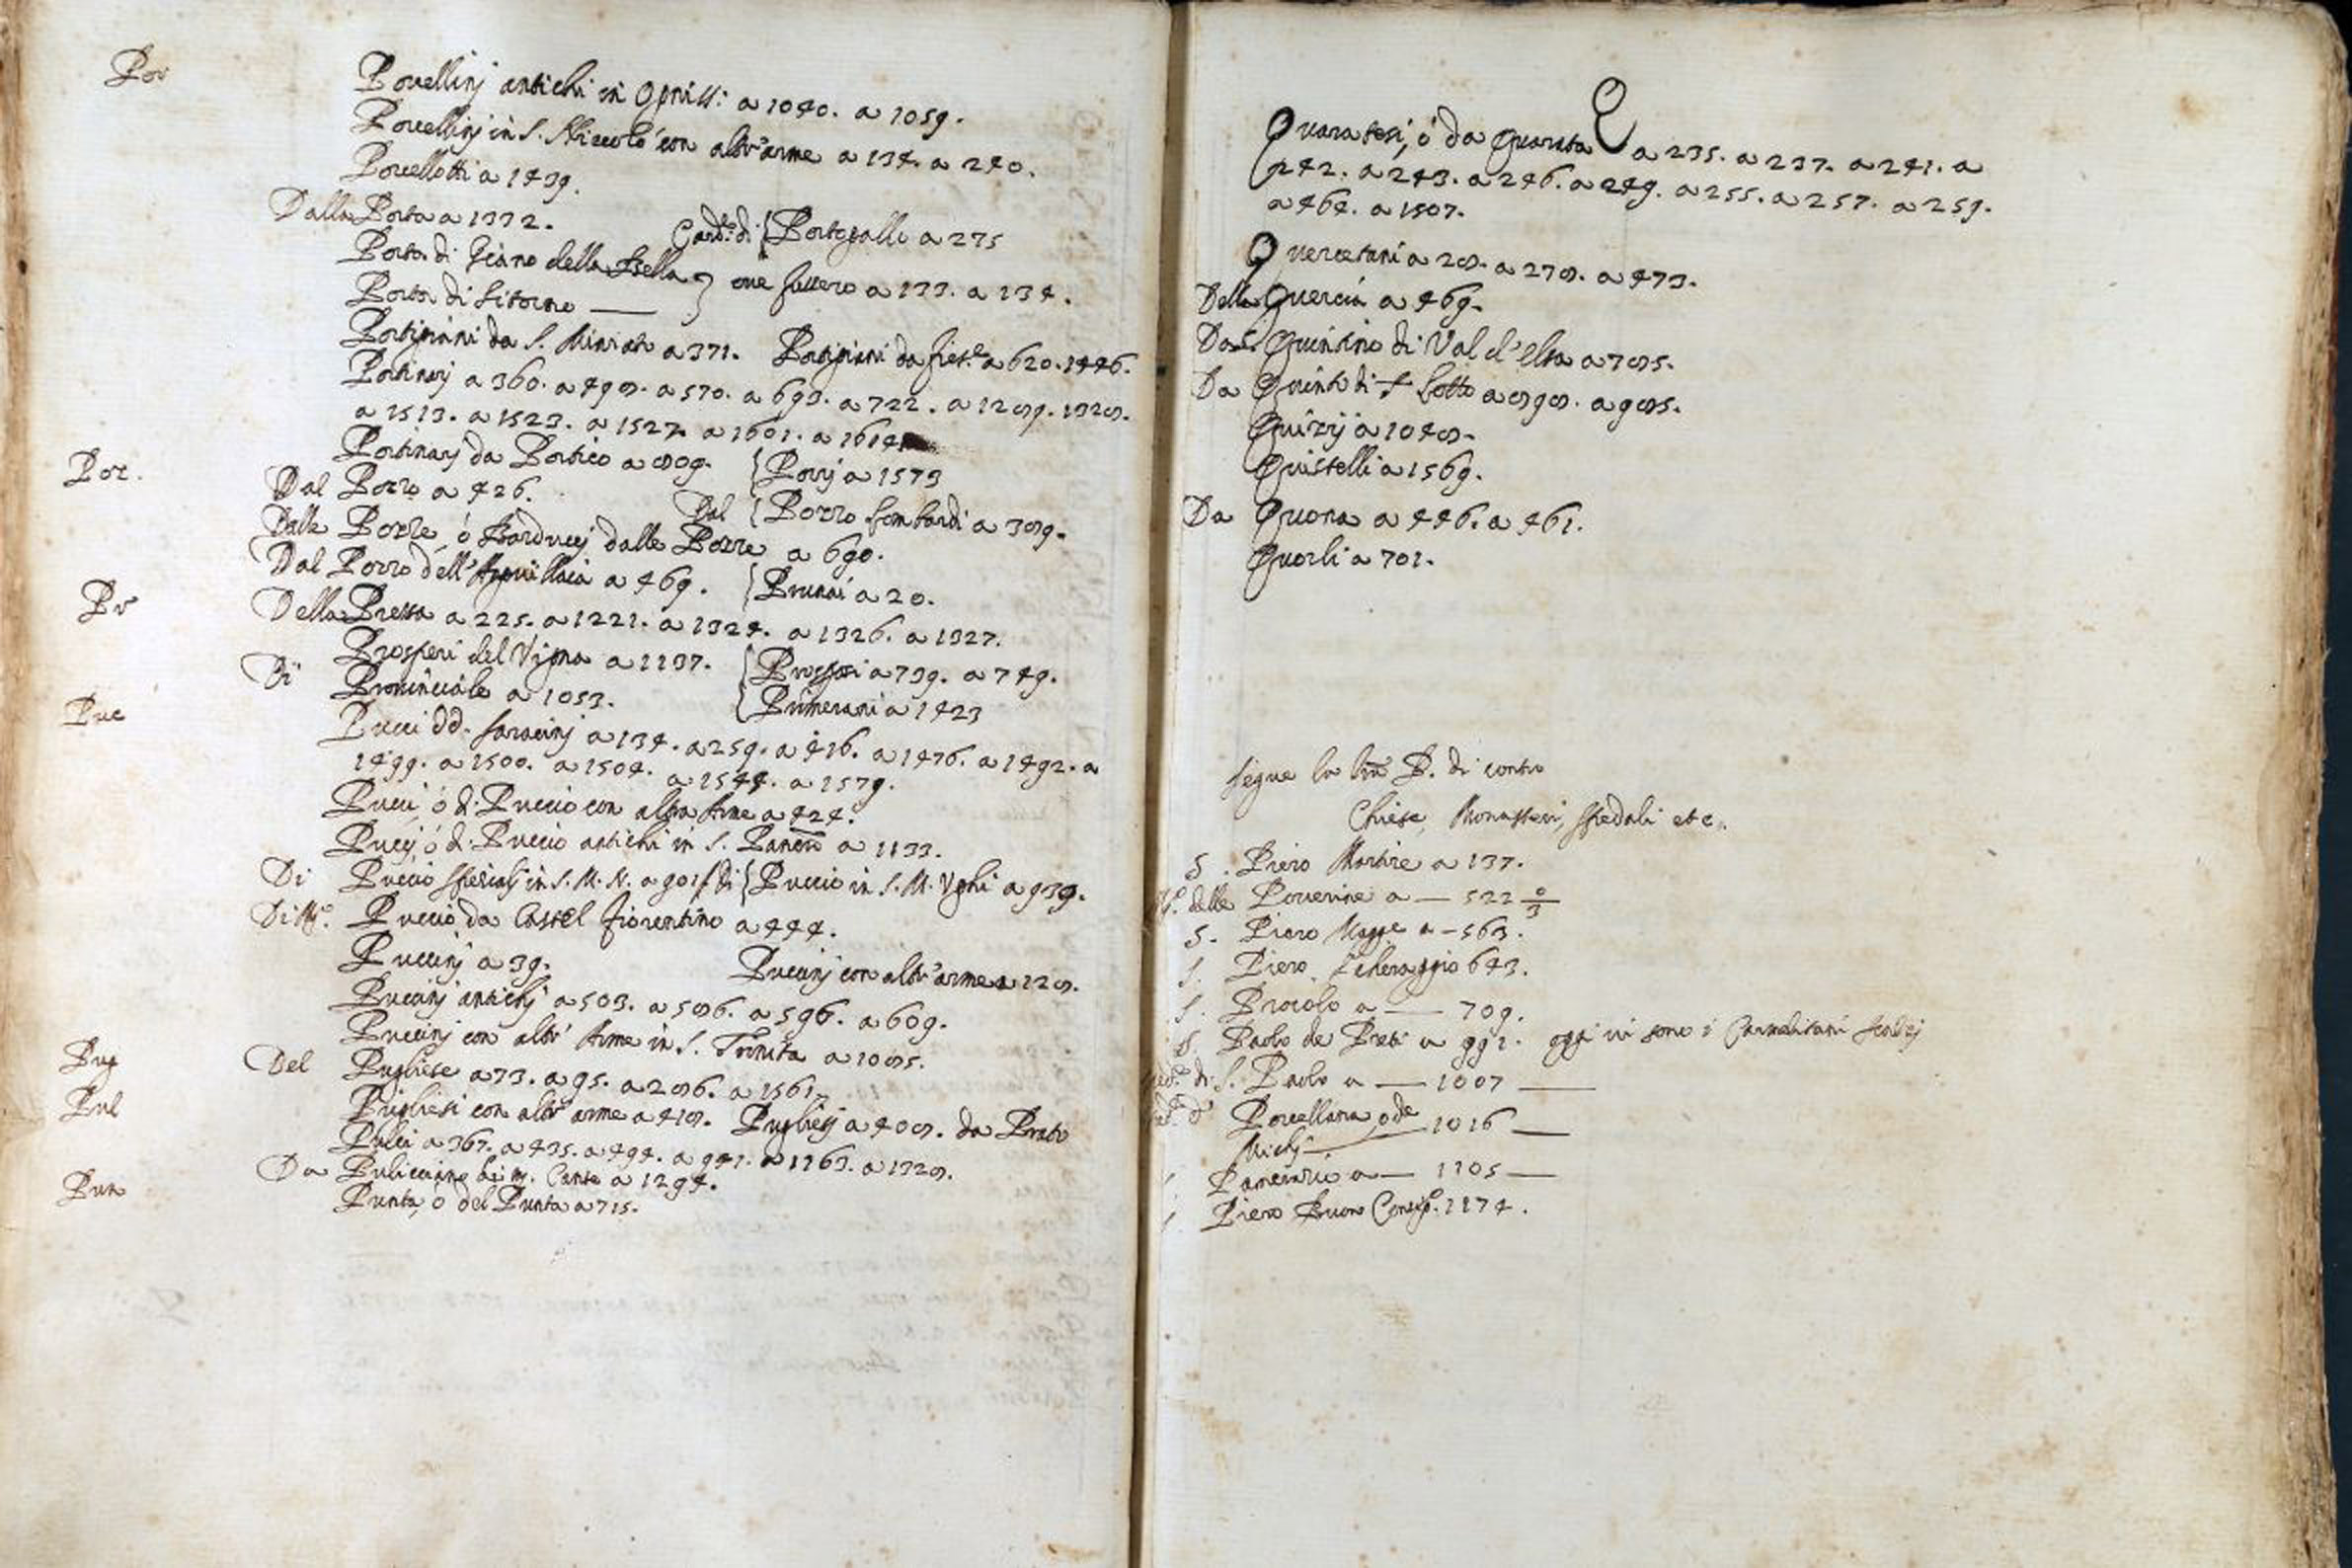 Por
Porcellinj antichi in Ogniss: a 1040. a 1059.
Porcellinj in S. Niccolò con altr'arme a 134. a 240.
Porcellotti a 1439.
Dalla Porta a 1332.
Card: di { Portogallo a 275
Porta di Giano della Bella } ove fussero a 133. a 134.
Porta di Liborno
Portigiani da S. Miniato a 371. Portigiani da fiesle a 620. 1446.
Portinarj a 360. a 498. a 570. a 693. a 722. a 1289. 1328.
a 1513. a 1523. a 1527. a 1601. a 1614
Portinarj da Portico a 809. { Porrj a 1573
Poz.
Dal Pozzo a 426. Dal { Pozzo Lombardi a 389.
Dalle Pozze, ó Barduccj dalle Pozze a 690.
Dal Pozzo dell'Anguillaia a 469. { Prunai a 20.
Pr
Della Pressa a 225. a 1221. a 1324. a 1326. a 1327.
Prosperi del Vigna a 1137. a 739. a 749.
Di Provinciale a 1053. { Primerani a 1423
Puc
Pucci dd. Saracinj a 134. a 259. a 416. a 1476. a 1492. a
1499. a 1500. a 1504. a 1544. a 1579.
Pucci, ó di Puccio con altra Arme a 424.
Puccj, ó di Puccio antichi in S. Pancro a 1133.
Di Puccio spezialj in S. M. N. a 901 di { Puccio in S. M. Ughi a 939.
Di Mo. Puccio da Castel fiorentino a 444.
Puccinj a 39. Puccinj con altr'arme a 128.
Puccinj antichj a 503. a 586. a 596. a 609.
Puccinj con altr'Arme in S. Trinita a 1085.
Pug
Del Pugliese a 73. a 95. a 286. a 1561.
Pugliesi con altr'arme a 418. Pugliesj a 408. da Prato
Pul
Pulci a 367. a 435. a 494. a 941. a 1163. a 1328.
Da Puliccciano a 1294.
Pun
Punta, o del Punta a 715.
Q
Quaratesi, ó da Quarata a 235. a 237. a 241. a
242. a 243. a 246. a 249. a 255. a 257. a 259.
a 464. a 1507.
Quercetani a 28. a 278. a 473.
Della Quercia a 469.
Da S. Quintino di Val d'elsa a 785.
Da Quinto di S. Lotto a 898. a 985.
Quirij a 1048.
Quistelli a 1569.
Da Quona a 446. a 461.
Quorli a 701.
Segue la lra P. di contro
Chiese, Monasteri, Spedali etc.
S. Piero Martire a 137.
delle Poverine a — 522 o/3
S. Piero Magge a — 563.
S. Piero Scheraggio 643.
S. Procolo a — 709.
S. Paolo de Preti a 991. oggi vi sono i Carmelitani Scalzj
di S. Paolo a — 1007 —
Porcellana, o de 1016 —
Michj
Pancrazio a — 1105 —
Piero Buon Consigo. 1174.